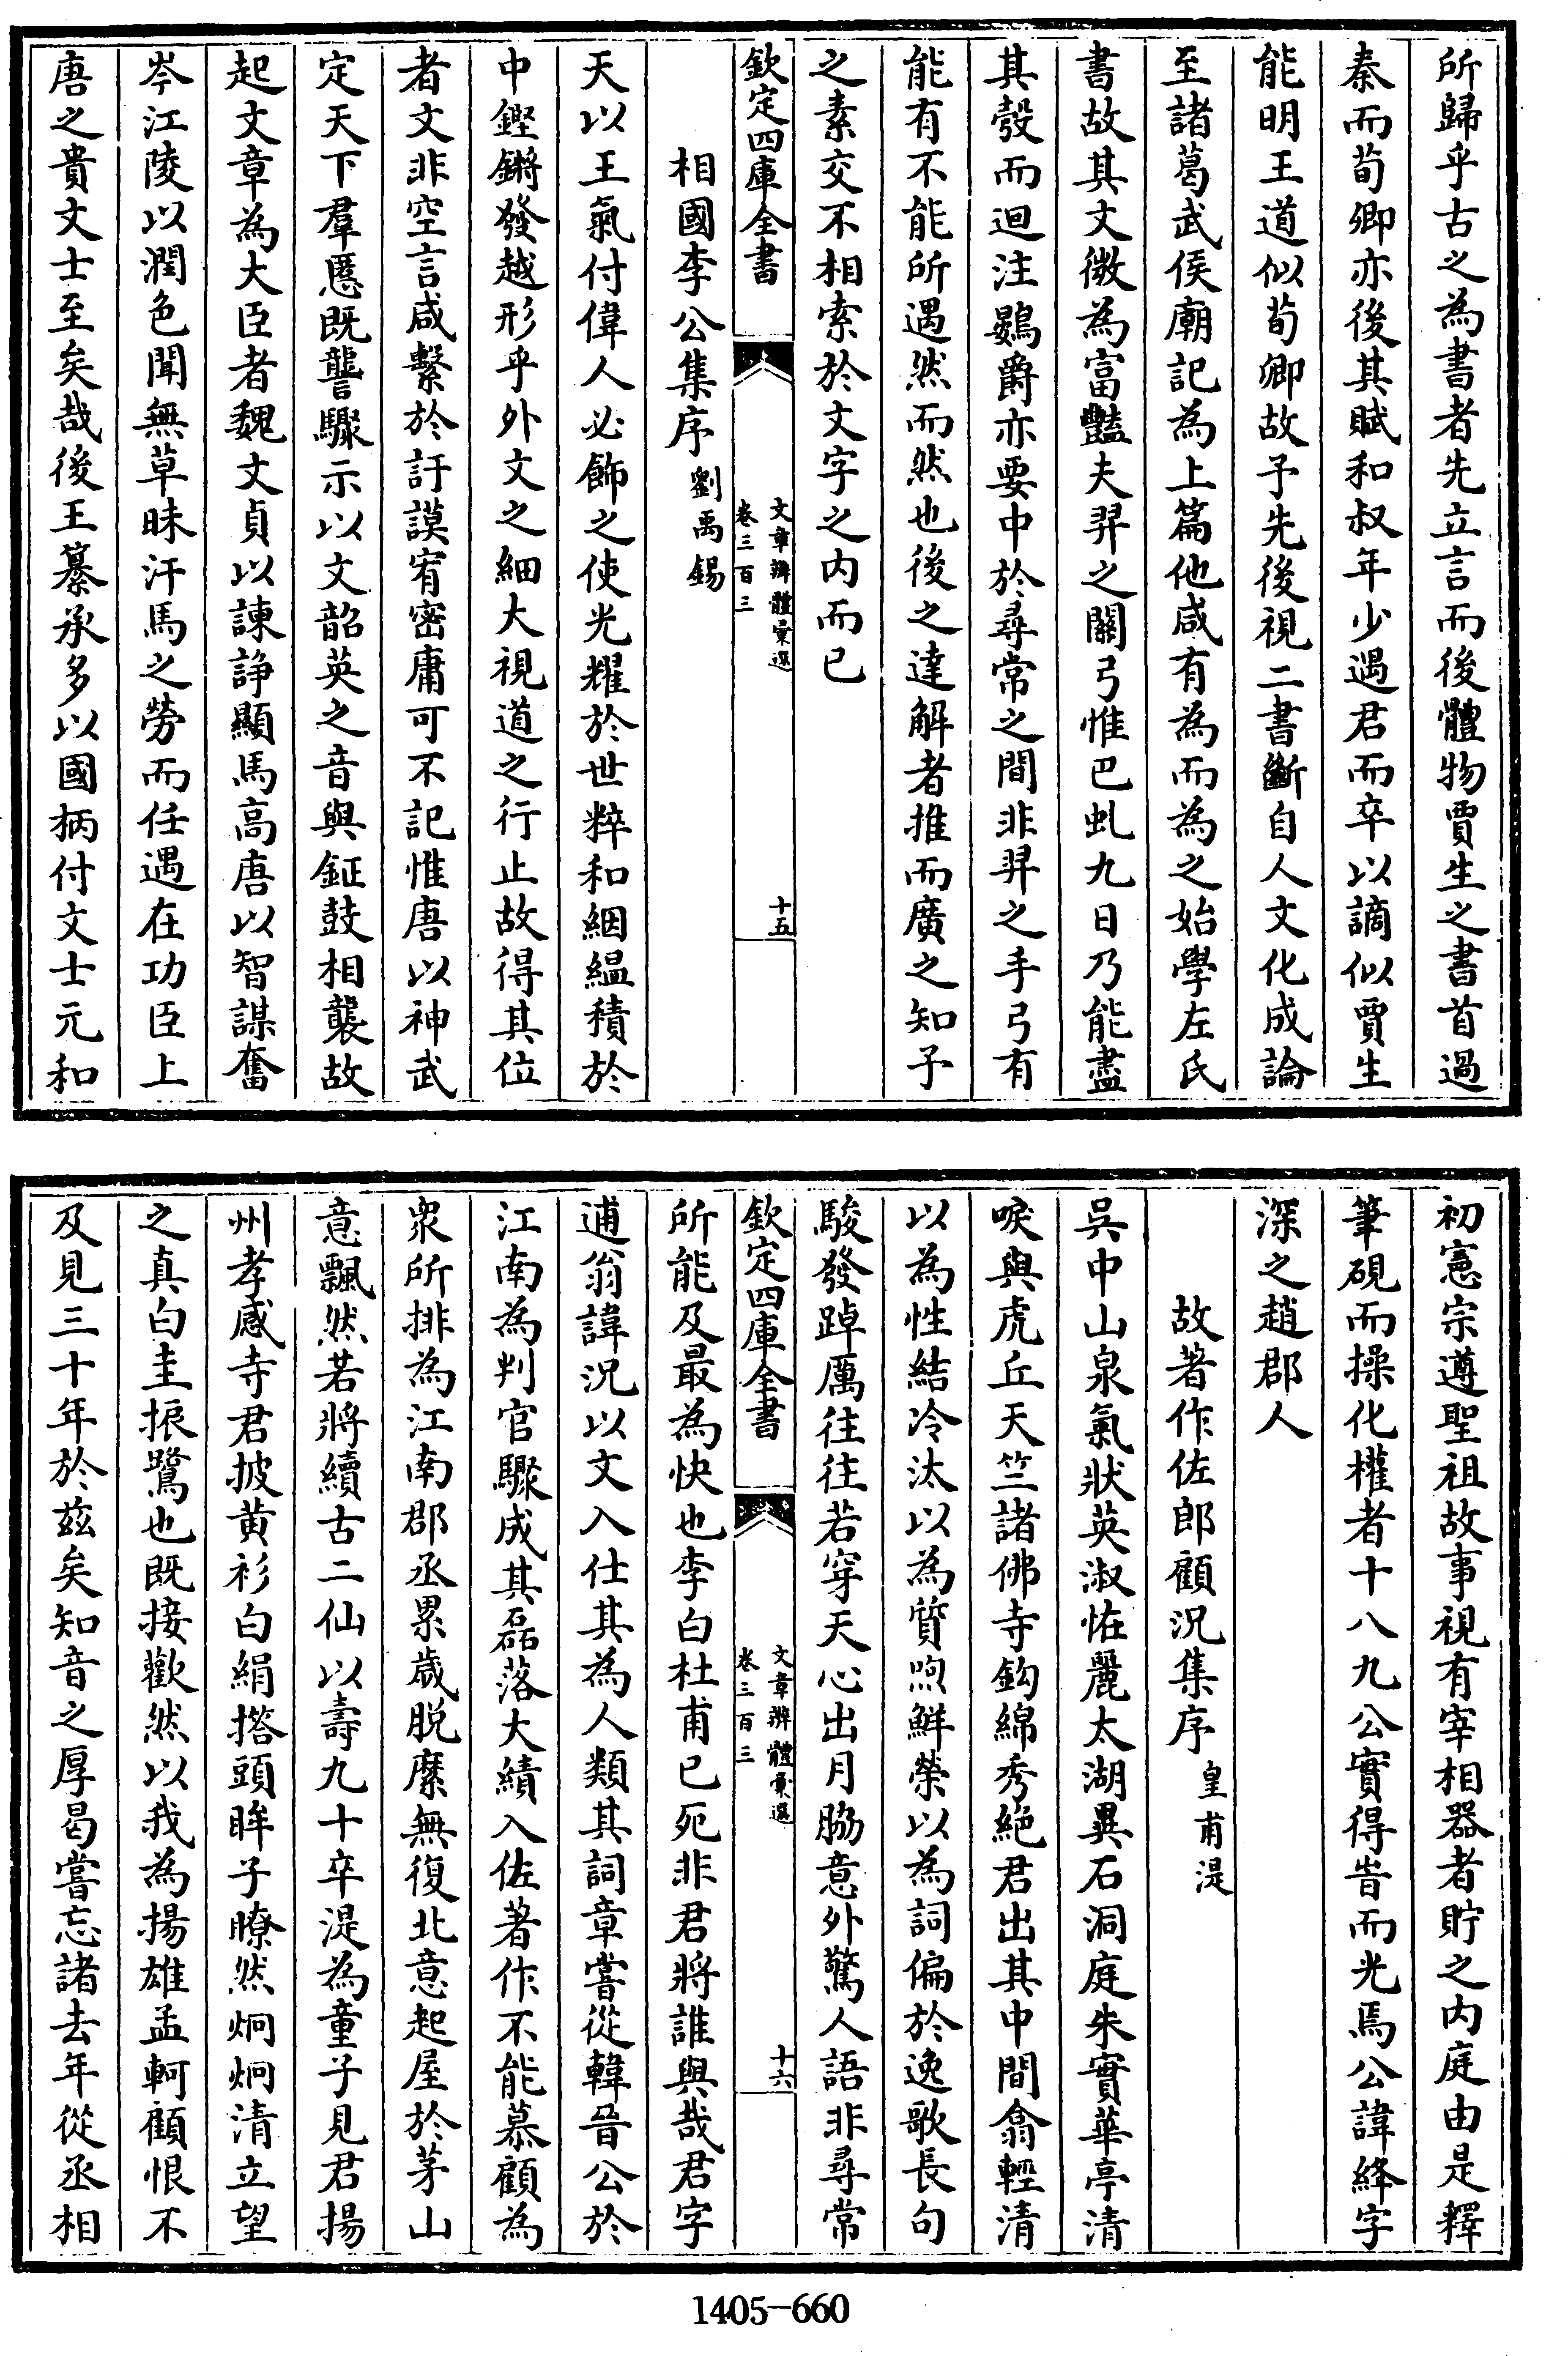 所歸乎古之為書者先立言而後體物賈生之書首過
秦而荀卿亦後其賦和叔年少遇君而卒以謫似賈生
能明王道似荀卿故予先後視二書斷自人文化成論
至諸葛武侯廟記為上篇他咸有為而為之始學左氏
書故其文微為富豔夫羿之關弓惟巴虬九日乃能盡
其彀而迴注鷃爵亦要中於尋常之間非羿之手弓有
能有不能所遇然而然也後之達解者推而廣之知予
之素交不相索於文字之內而已
欽定四庫全書
文章辨體彙選
卷三百三
十五
相國李公集序 劉禹錫
天以王氣付偉人必飾之使光耀於世粹和絪縕積於
中鏗鏘發越形乎外文之細大視道之行止故得其位
者文非空言咸繫於訏謨宥密庸可不記惟唐以神武
定天下羣慝既讋驟示以文韶英之音與鉦鼓相襲故
起文章為大臣者魏文貞以諫諍顯馬高唐以智謀奮
岑江陵以潤色聞無草昧汗馬之勞而任遇在功臣上
唐之貴文士至矣哉後王纂承多以國柄付文士元和
初憲宗遵聖祖故事視有宰相器者貯之內庭由是釋
筆硯而操化權者十八九公實得旹而光焉公諱絳字
深之趙郡人
故著作佐郎顧況集序 皇甫湜
吳中山泉氣狀英淑怪麗太湖異石洞庭朱實華亭清
唳與虎丘天竺諸佛寺鈎綿秀絕君出其中間翕輕清
以為性結冷汰以為質煦鮮榮以為詞偏於逸歌長句
駿發踔厲往往若穿天心出月脇意外驚人語非尋常
欽定四庫全書
文章辨體彙選
卷三百三
十六
所能及最為快也李白杜甫已死非君將誰與哉君字
逋翁諱況以文入仕其為人類其詞章嘗從韓晉公於
江南為判官驟成其磊落大績入佐著作不能慕顧為
衆所排為江南郡丞累歲脫縻無復北意起屋於茅山
意飄然若將續古二仙以壽九十卒湜為童子見君揚
州孝感寺君披黃衫白絹撘頭眸子瞭然炯炯清立望
之真白圭振鷺也既接歡然以我為揚雄孟軻顧恨不
及見三十年於茲矣知音之厚曷嘗忘諸去年從丞相
1405-660